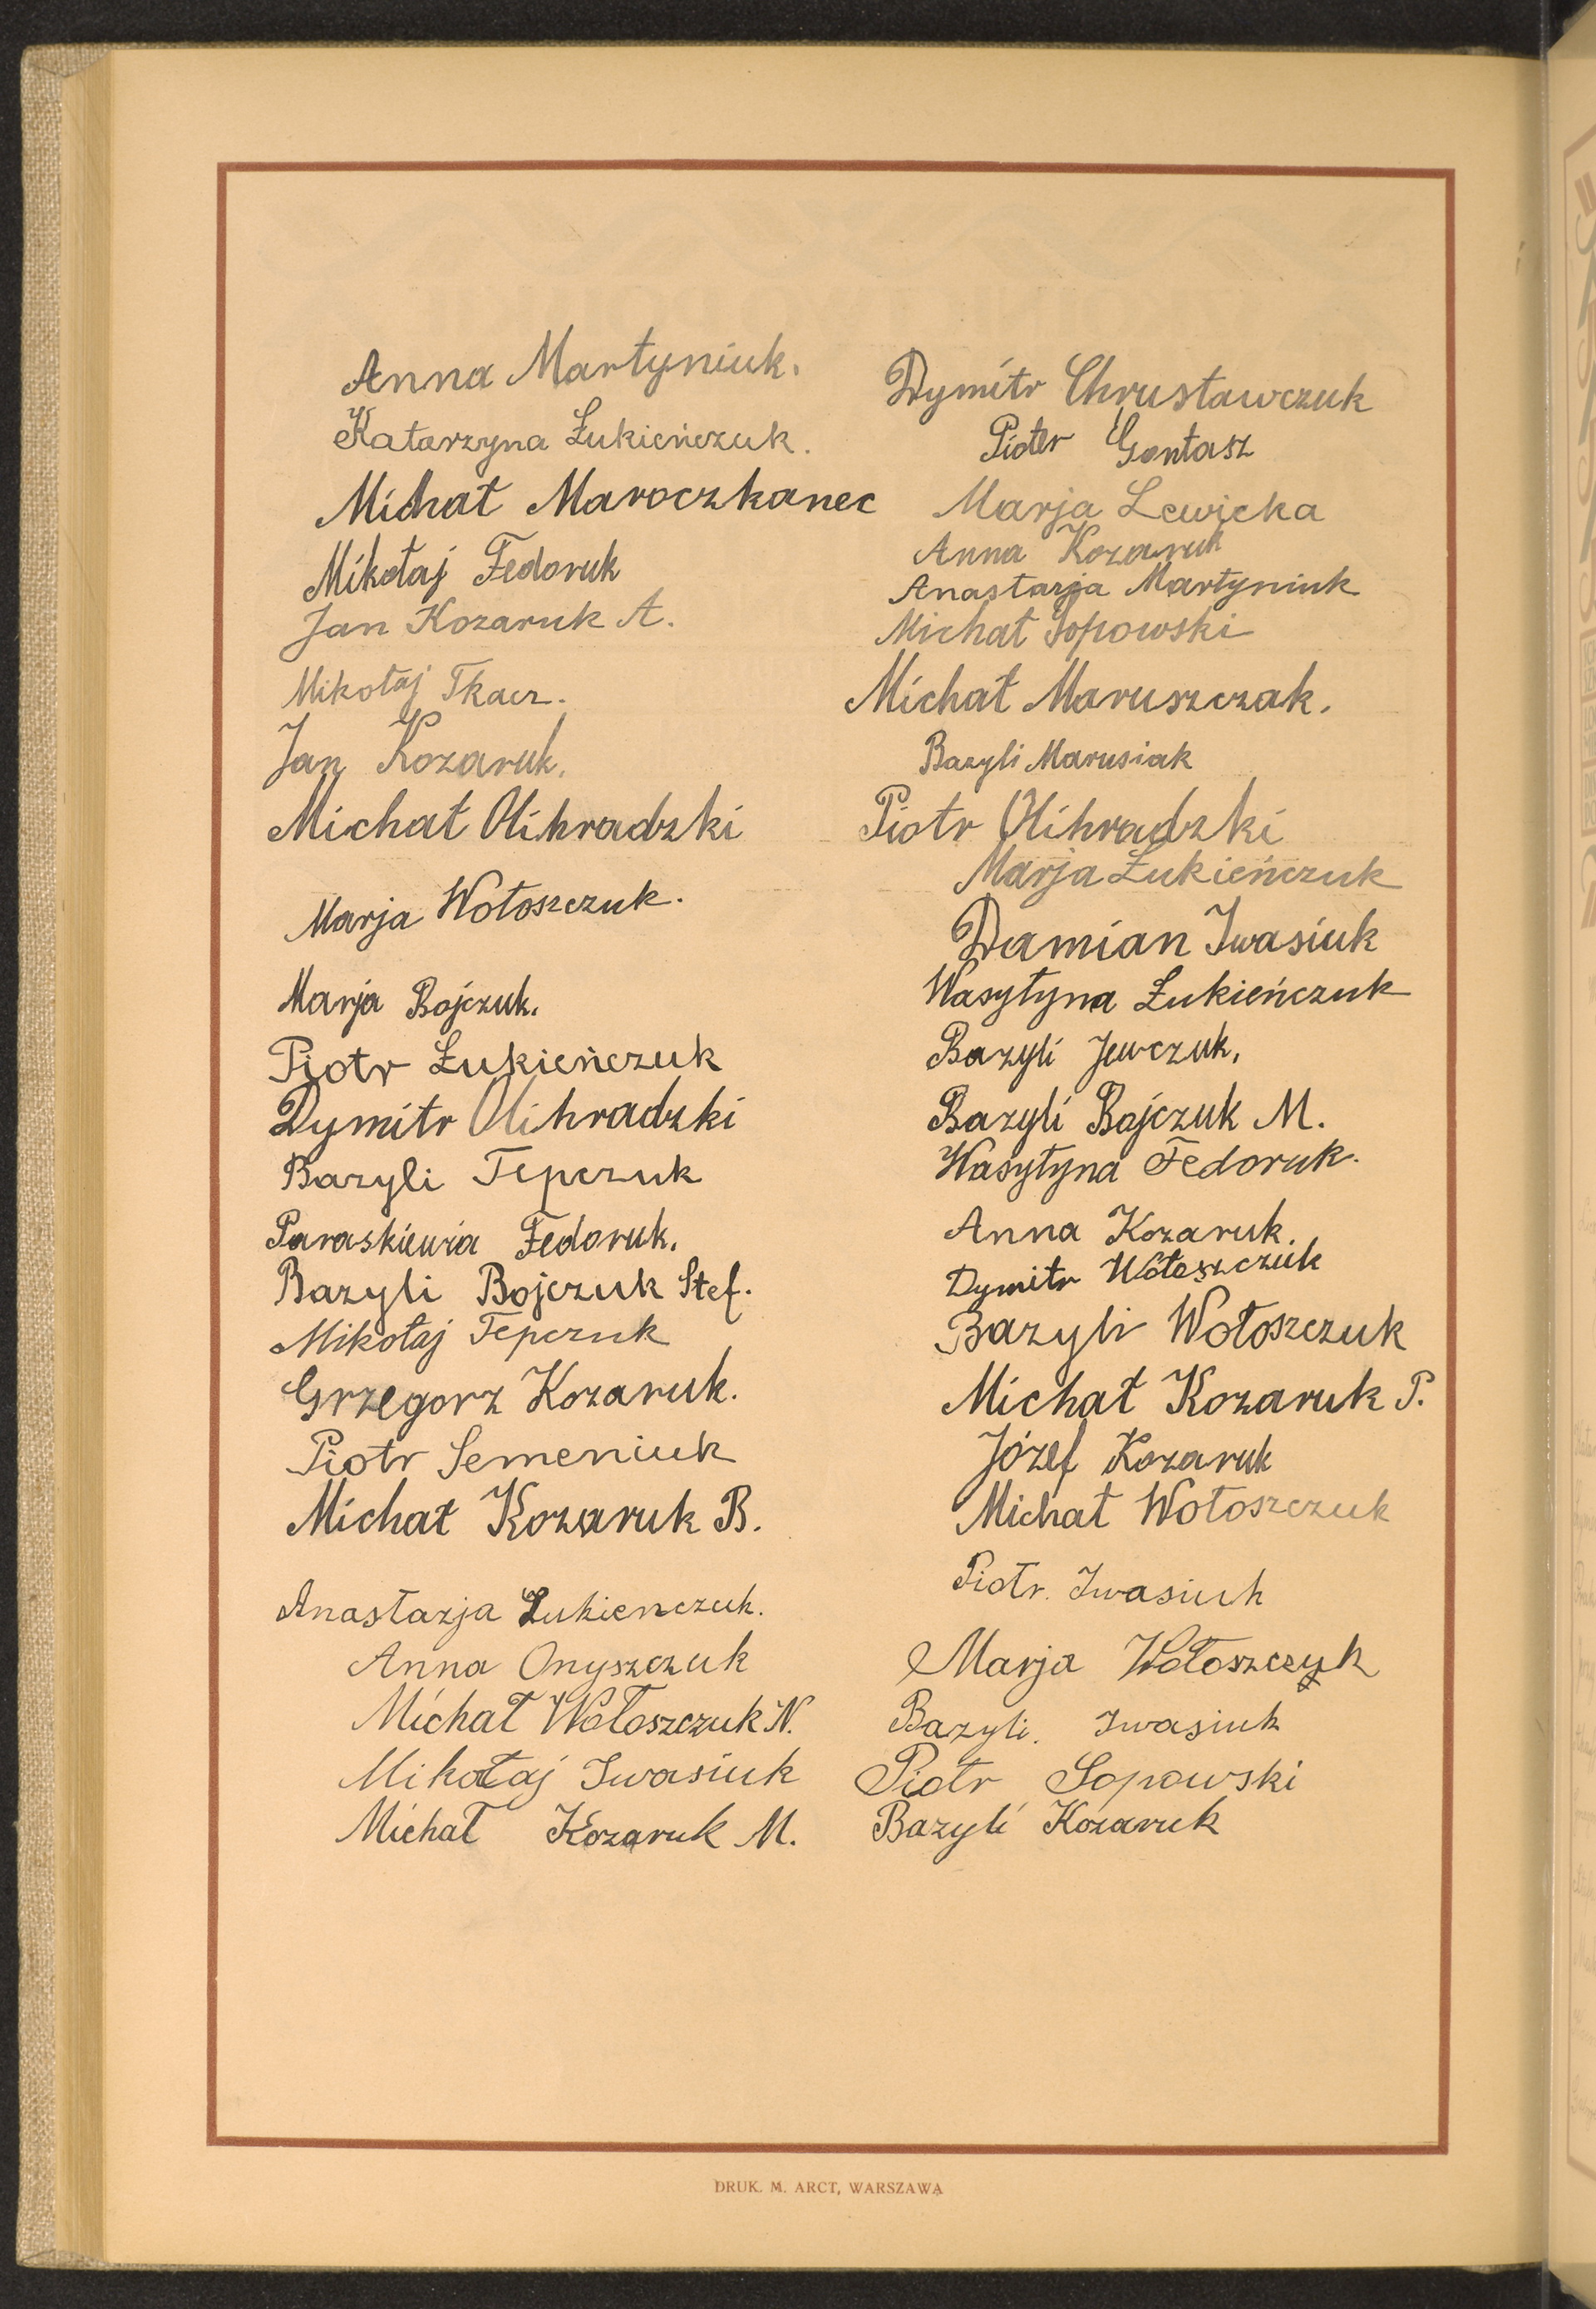 Anna Martyniuk.
Katarzyna Łukieńczuk.
Michał Maroczkanec
Mikołaj Fedoruk
Jan Kozaruk A.
Mikołaj Tkacz.
Jan Kozaruk.
Michał Olihradzki
Marja Wołoszczuk.
Marja Bojczuk.
Piotr Łukieńczuk
Dymitr Olihradzki
Bazyli Tepczuk
Paraskiewia Fedoruk.
Bazyli Bojczuk Stef.
Mikołaj Tepczuk
Grzegorz Kozaruk.
Piotr Semeniuk
Michał Kozaruk B.
Anastazja Łukienczuk.
Anna Onyszczuk
Michał Wołoszczuk N.
Mikołaj Iwasiuk
Michał Kozaruk M.
Dymitr Chrustawczuk
Pioter Gontasz
Marja Lewicka
Anna Kozaruk
Anastazja Martyniuk
Michał Sopowski
Michał Maruszczak.
Bazyli Marusiak
Piotr Olihradzki
Marja Łukieńczuk
Damian Iwasiuk
Wasyłyna Łukieńczuk
Bazyli Jewczuk,
Bazyli Bojczuk M.
Wasyłyna Fedoruk.
Anna Kozaruk.
Dymitr Wołoszczuk
Bazyli Wołoszczuk
Michał Kozaruk P.
Józef Kozaruk
Michał Wołoszczuk
Piotr. Iwasiuk
Marja Wołoszczyk
Bazyli. Iwasiuk
Piotr Sopowski
Bazyli Kozaruk
DRUK. M. ARCT, WARSZAWA